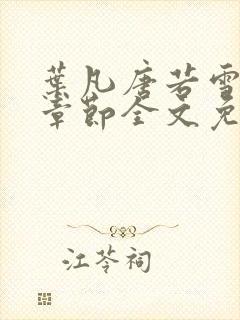 葉凡唐若雪
章節全文免
江苓祠